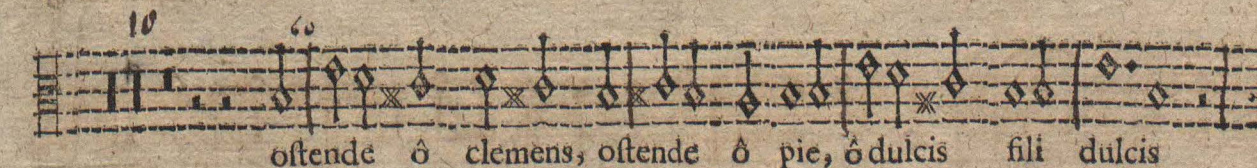 10 60
oſtende ô clemens, oſtende ô pie, ô dulcis fili dulcis